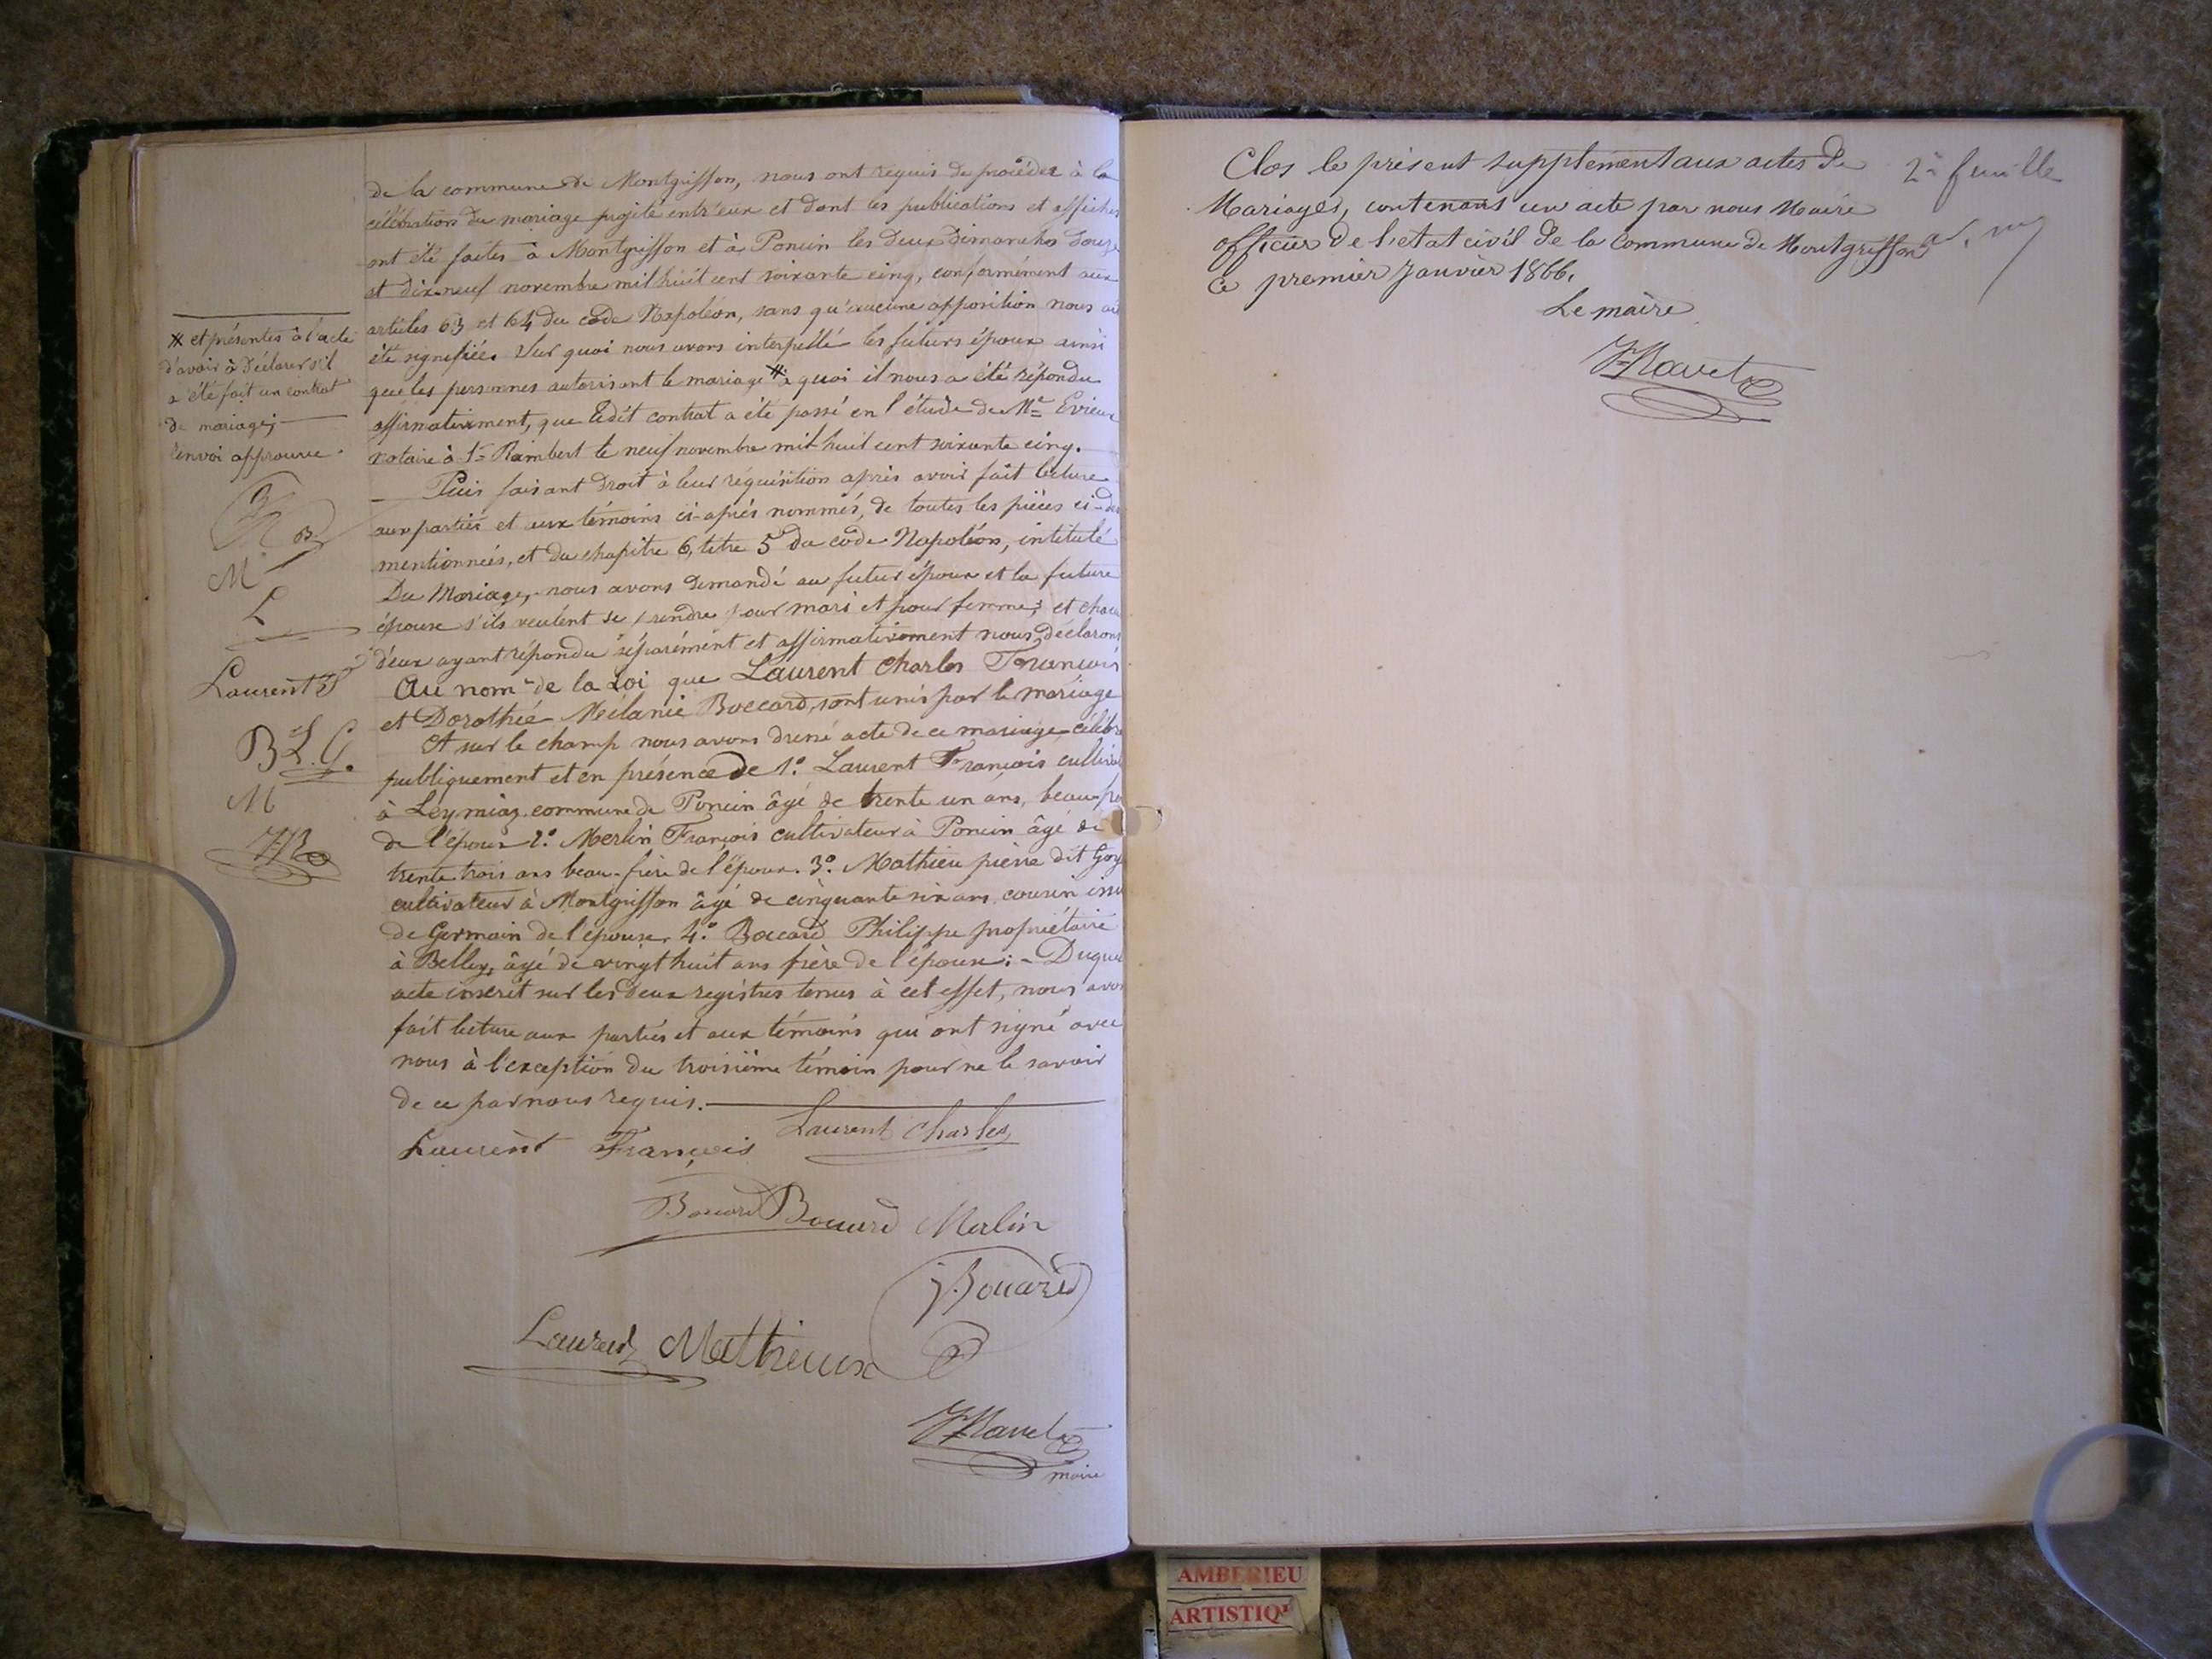 de la commune de Montgriffon, nous ont requis de procéder à la
célébration du mariage projété entr'eux et dont les publications et affiches
ont été faites à Montgriffon et à Poncin les deux dimanches douze
et dix-neuf novembre mil huit cent soixante cinq, conformément aux
articles 63 et 64 du code Napoléon, sans qu'aucune opposition nous ait
été signifiée. Sur quoi nous avons interpellé les futurs époux ainsi
que les personnes autorisant le mariage # à quoi il nous a été répondu
affirmativement, que ledit contrat a été passé en l'étude de Me Evieux
notaire à St Rambert le neuf novembre mil huit cent soixante cinq.
Puis faisant droit à leur réquisition après avoir fait lecture
aux parties et aux témoins ci-après nommés, de toutes les pièces ci-des
mentionnées, et du chapitre 6, titre 5e du code Napoléon, intitulé
Du Mariage, nous avons demandé au futur époux et la future
épouse s'ils veulent se prendre pour mari et pour femme; et chacun
d'eux ayant répondu séparément et affirmativement nous déclarons
Au nom de la Loi que Laurent Charles François
et Dorothée Mélanie Boccard, sont unis par le mariage
Et sur le champ nous avons dressé acte de ce mariage célébré
publiquement et en présence de 1o. Laurent François cultivat
à Leymiaz commune de Poncin âgé de trente un ans, beau-frè
de l'époux 2o. Merlin François cultivateur à Poncin âgé de
trente trois ans beau-frère de l'époux. 3o. Mathieu pierre dit Goy
cultivateur à Montgriffon âgé de cinquante six ans, cousin issu
de Germain de l'épouse, 4o. Boccard Philippe propriétaire
à Belley, âgé de vingt huit ans frère de l'épouse; - Duquel
acte inscrit sur les deux registres tenus à cet effet, nous avons
fait lecture aux parties et aux témoins qui ont signé avec
nous à l'exception du troisième témoin pour ne le savoir
de ce par nous requis.
Laurent Charles
Laurent François
Boccard Boccard Merlin
Boccard
Laurent Matthieux
Ravet
maire
# et présentes à l'acte
d'avoir à déclarer s'il
a été fait un contrat
de mariage;
renvoi approuvé.
B
M
L
Laurent F
B L. C.
M
Clos le présent supplément aux actes de
Mariages, contenant un acte par nous Maire
officier de l'etat civil de la Commune de Montgriffon
ce premier Janvier 1866.
Le maire
Ravet
2e feuille
AMBERIEU
ARTISTIQ